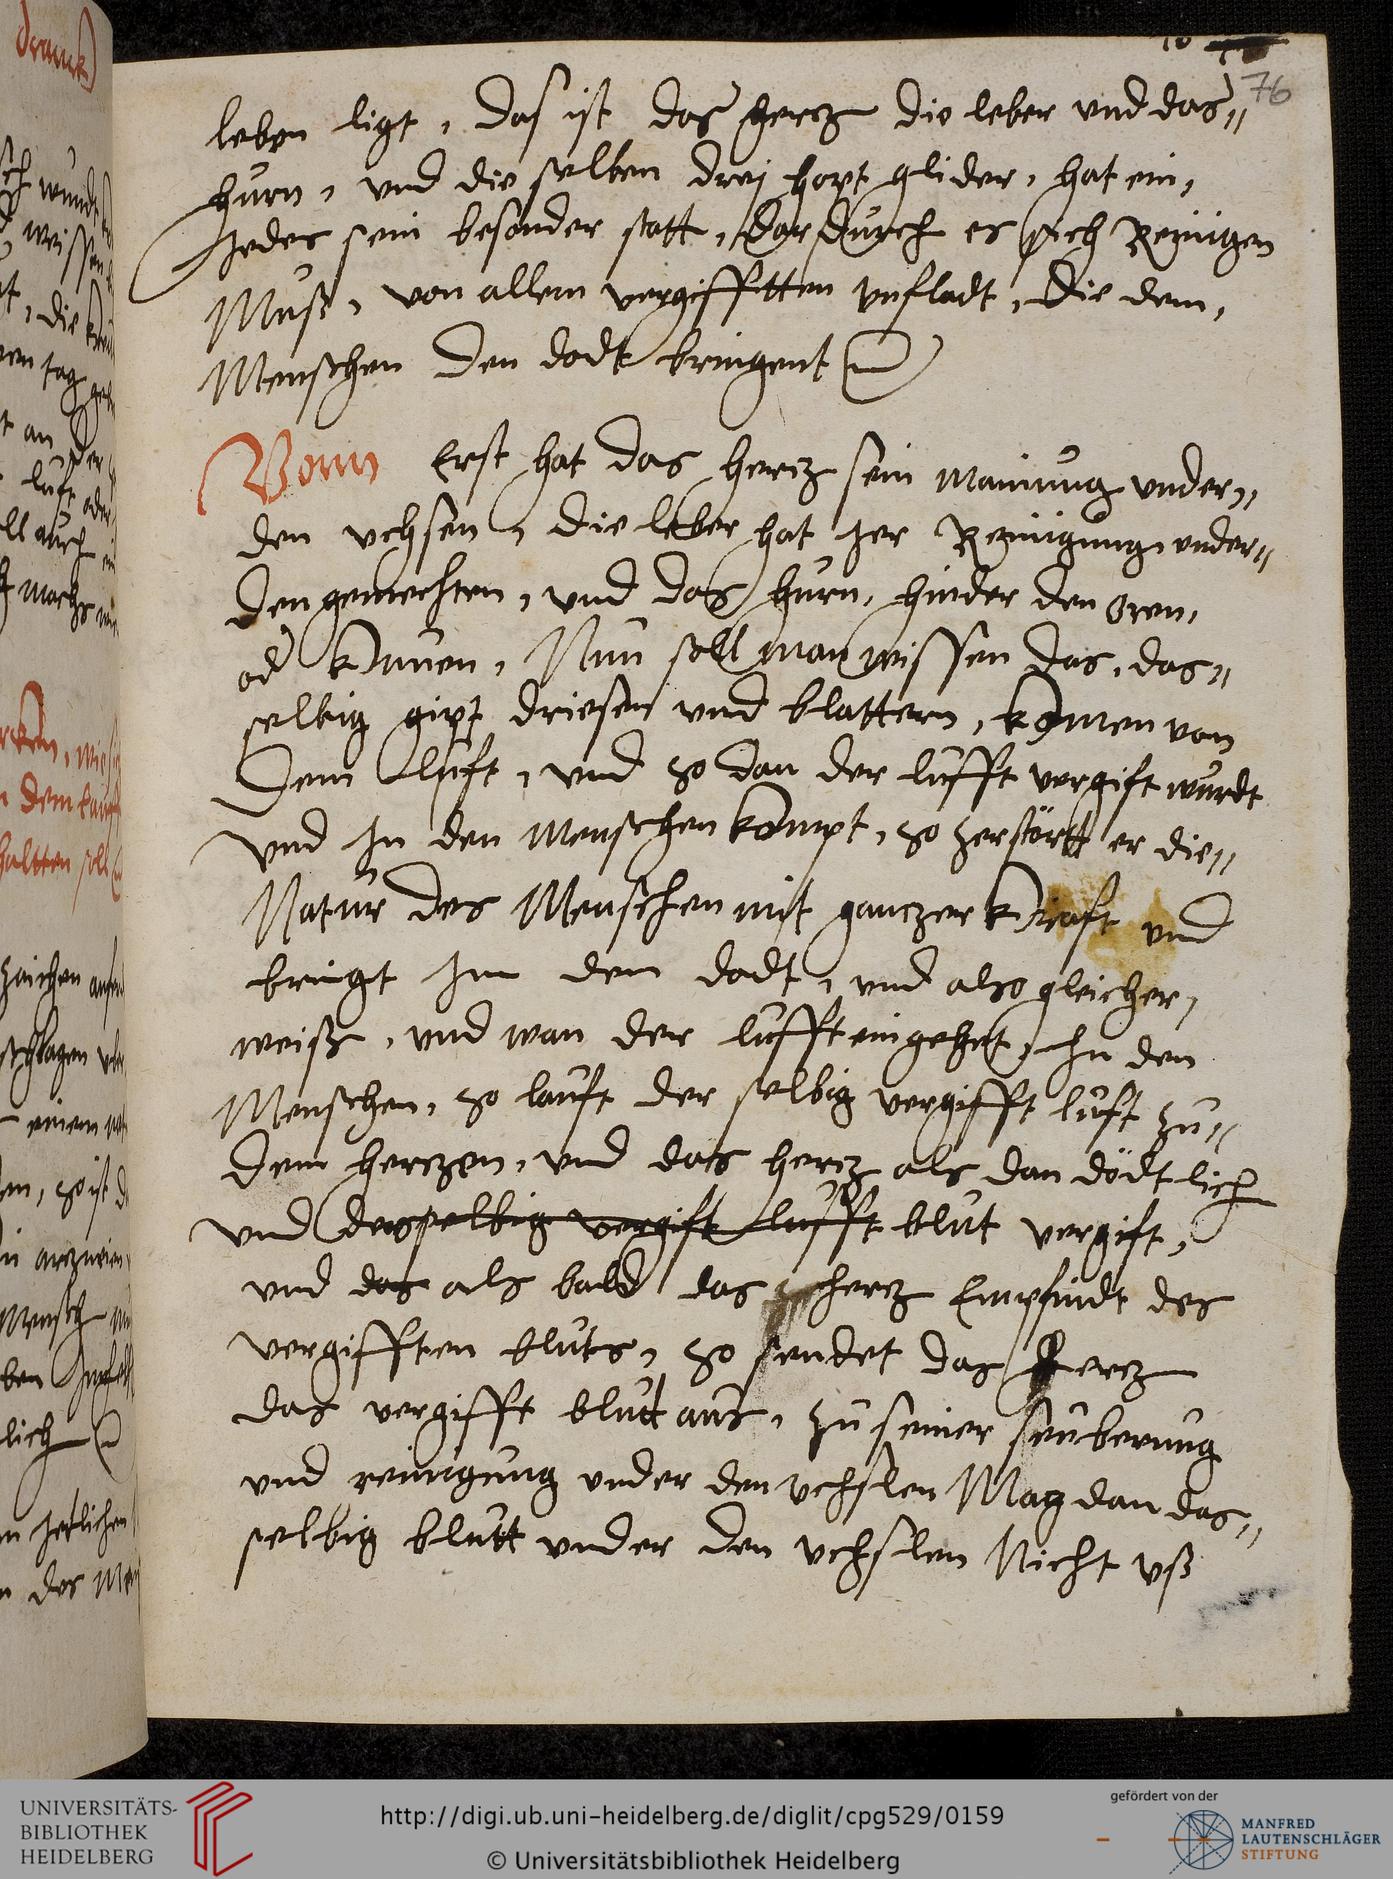 76
leben ligt, das ist das hercz die leber vnd das„
hurn, vnd die selben drej hopt glider, hat ein,
Jedes sein besonder statt, dardurch es sich Reinigen
Muß, von allem vergifftten vnfladt, die dem,
Menschen den dodt bringent
Vonn Erst hat das hercz sein Mainung vnder„
den vchsen, die leber hat Jer Reinigung, vnder„
den gemechten, vnd das hurn, hinder den oren,
od Kinnen, Nun soll man wissen das, das„
selbig gipt driesen vnd blattern, komen von
Dem luft, vnd so dan der lufft vergift wurdt
vnd In den Menschen kompt, so zerstörtt er die„
Natur des Menschen mit ganczer Krafft vnd
bringt Im den dodt, vnd also gleicher,
weiß, vnd wan der lufft eingehet, In den
Menschen, so lauft der selbig vergifft luft zu„
Dem herczen, vnd das hercz als dan dödtlich
vnd desselbig vergift lufft blut vergift,
vnd das als bald das hercz Empfindt des
vergifften bluts, so sendet das Hercz
das vergifft blutt aus, zu seiner seuberung
vnd reinigung vnder den vchslen Mag dan das„
selbig blutt vnder den vchslen Nicht vß
UNIVERSITÄTS-
BIBLIOTHEK
HEIDELBERG
http://digi.ub.uni-heidelberg.de/diglit/cpg529/0159
© Universitätsbibliothek Heidelberg
gefördert von der
MANFRED
LAUTENSCHLÄGER
STIFTUNG